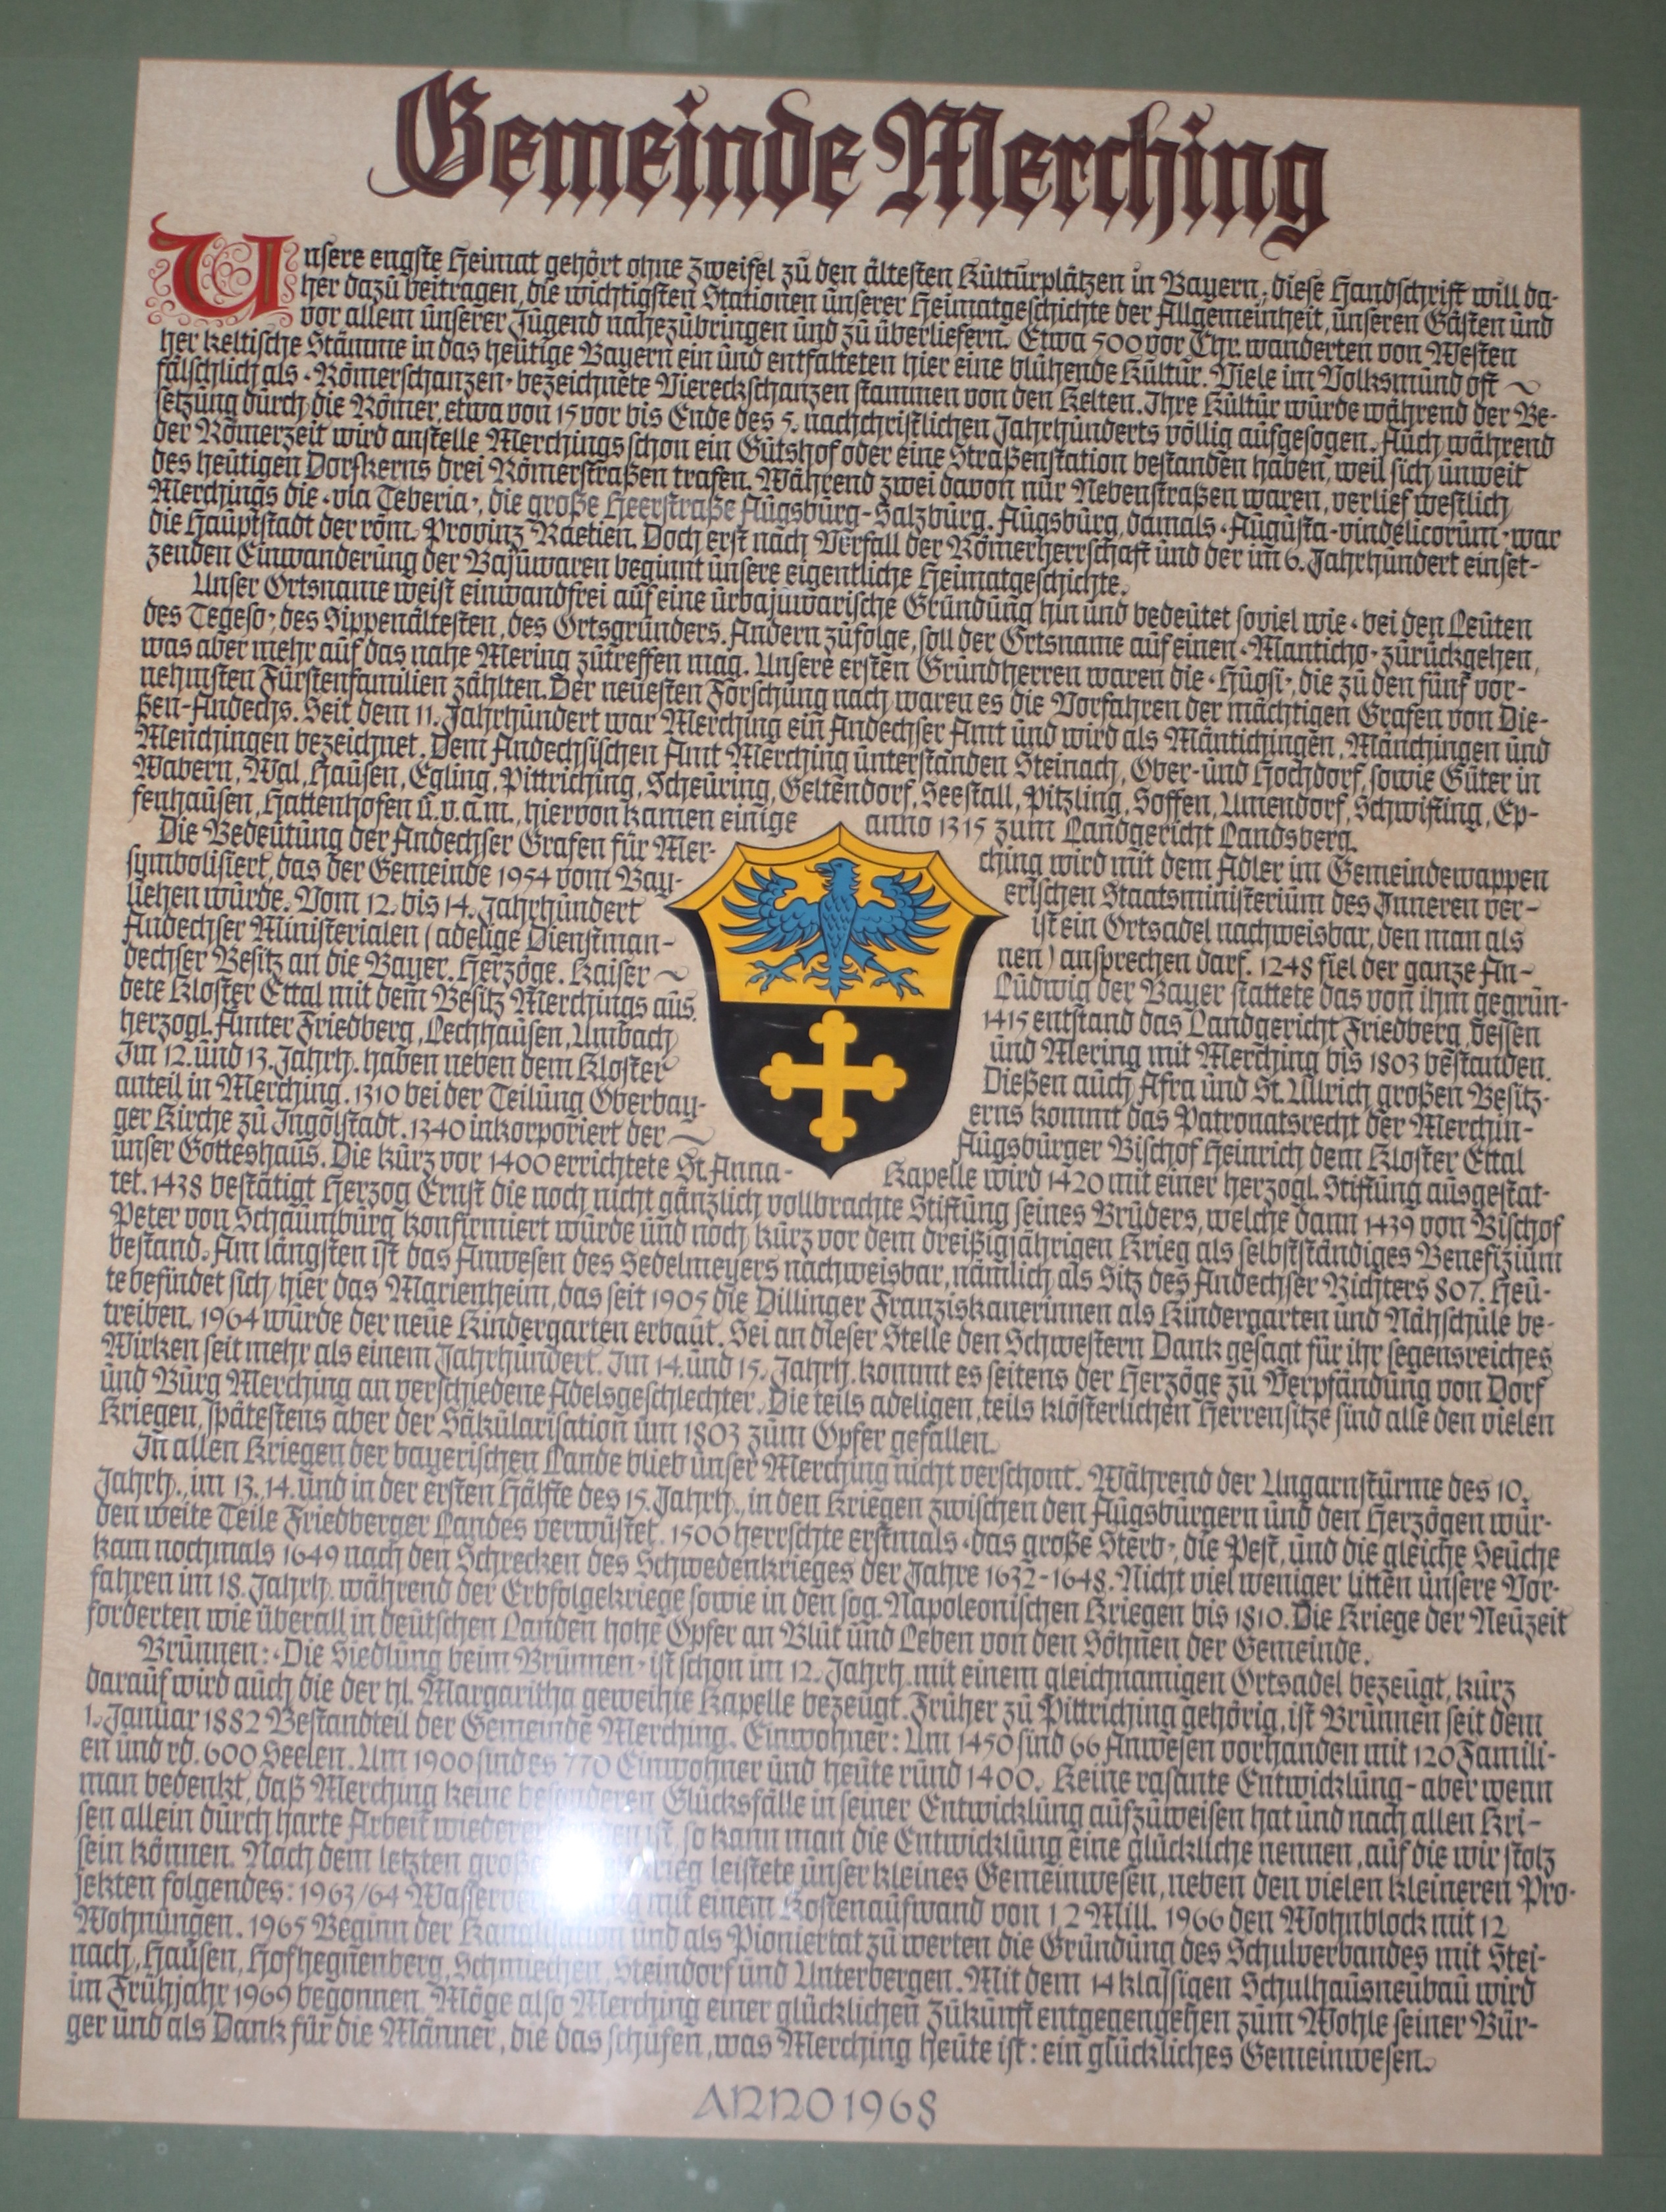 Gemeinde Merching
Unsere engste Heimat gehört ohne Zweifel zu den ältesten Kulturplätzen in Bayern, diese Handschrift will da-
her dazu beitragen, die wichtigsten Stationen unserer Heimatgeschichte der Allgemeinheit, unseren Gästen und
vor allem unserer Jugend nahezubringen und zu überliefern. Etwa 500 vor Chr. wanderten von Westen
her keltische Stämme in das heutige Bayern ein und entfalteten hier eine blühende Kultur. Viele im Volksmund oft
fälschlich als "Römerschanzen" bezeichnete Viereckschanzen stammen von den Kelten. Ihre Kultur wurde während der Be-
setzung durch die Römer, etwa von 15 vor bis Ende des 5. nachchristlichen Jahrhunderts völlig aufgesogen. Auch während
der Römerzeit wird anstelle Merchings schon ein Gutshof oder eine Straßenstation bestanden haben, weil sich unweit
des heutigen Dorfkerns drei Römerstraßen trafen. Während zwei davon nur Nebenstraßen waren, verlief westlich
Merchings die "via Teberia", die große Heerstraße Augsburg-Salzburg. Augsburg, damals "Augusta-vindelicorum" war
die Hauptstadt der röm. Provinz Raetien. Doch erst nach Verfall der Römerherrschaft und der im 6. Jahrhundert einset-
zenden Einwanderung der Bajuwaren beginnt unsere eigentliche Heimatgeschichte.
Unser Ortsname weist einwandfrei auf eine urbajuwarische Gründung hin und bedeutet soviel wie "bei den Leuten
des Tegeso", des Sippenältesten, des Ortsgründers. Andern zufolge, soll der Ortsname auf einen "Manticho" zurückgehen,
was aber mehr auf das nahe Mering zutreffen mag. Unsere ersten Grundherren waren die "Huosi", die zu den fünf vor-
nehmsten Fürstenfamilien zählten. Der neuesten Forschung nach waren es die Vorfahren der mächtigen Grafen von Die-
ßen-Andechs. Seit dem 11. Jahrhundert war Merching ein Andechser Amt und wird als Mäntichingen, Mänchingen und
Menchingen bezeichnet. Dem Andechsischen Amt Merching unterstanden Steinach, Ober- und Hochdorf, sowie Güter in
Wabern, Wal, Hausen, Egling, Pittriching, Scheuring, Geltendorf, Seestall, Pitzling, Soffen, Umendorf, Schwifting, Ep-
fenhausen, Hattenhofen u.v.a.m., hiervon kamen einige anno 1315 zum Landgericht Landsberg.
Die Bedeutung der Andechser Grafen für Mer-ching wird mit dem Adler im Gemeindewappen
symbolisiert, das der Gemeinde 1954 vom Bay-erischen Staatsministerium des Inneren ver-
liehen wurde. Vom 12. bis 14. Jahrhundert ist ein Ortsadel nachweisbar, den man als
Andechser Ministerialen (adelige Dienstman-nen) ansprechen darf. 1248 fiel der ganze An-
dechser Besitz an die Bayer. Herzöge. Kaiser Ludwig der Bayer stattete das von ihm gegrün-
dete Kloster Ettal mit dem Besitz Merchings aus. 1415 entstand das Landgericht Friedberg, dessen
herzogl. Ämter Friedberg, Lechhausen, Umbach und Mering mit Merching bis 1803 bestanden.
Im 12. und 13. Jahrh. haben neben dem Kloster Dießen auch Afra und St. Ullrich großen Besitz-
anteil in Merching. 1310 bei der Teilung Oberbay-erns kommt das Patronatsrecht der Merchin-
ger Kirche zu Ingolstadt. 1340 inkorporiert der Augsburger Bischof Heinrich dem Kloster Ettal
unser Gotteshaus. Die kurz vor 1400 errichtete St. Anna-Kapelle wird 1420 mit einer herzogl. Stiftung ausgestat-
tet. 1438 bestätigt Herzog Ernst die noch nicht gänzlich vollbrachte Stiftung seines Bruders, welche dann 1439 von Bischof
Peter von Schaumburg konfirmiert wurde und noch kurz vor dem dreißigjährigen Krieg als selbstständiges Benefizium
bestand. Am längsten ist das Anwesen des Sedelmeyers nachweisbar, nämlich als Sitz des Andechser Richters 807. Heu-
te befindet sich hier das Marienheim, das seit 1905 die Dillinger Franziskanerinnen als Kindergarten und Nähschule be-
treiben. 1964 wurde der neue Kindergarten erbaut. Sei an dieser Stelle den Schwestern Dank gesagt für ihr segensreiches
Wirken seit mehr als einem Jahrhundert. Im 14. und 15. Jahrh. kommt es seitens der Herzöge zu Verpfändung von Dorf
und Burg Merching an verschiedene Adelsgeschlechter. Die teils adeligen, teils klösterlichen Herrensitze sind alle den vielen
Kriegen, spätestens aber der Säkularisation um 1803 zum Opfer gefallen.
In allen Kriegen der bayerischen Lande blieb unser Merching nicht verschont. Während der Ungarnstürme des 10.
Jahrh., im 13. 14. und in der ersten Hälfte des 15. Jahrh., in den Kriegen zwischen den Augsburgern und den Herzögen wur-
den weite Teile Friedberger Landes verwüstet. 1500 herrschte erstmals "das große Sterb", die Pest, und die gleiche Seuche
kam nochmals 1649 nach den Schrecken des Schwedenkrieges der Jahre 1632-1648. Nicht viel weniger litten unsere Vor-
fahren im 18. Jahrh. während der Erbfolgekriege sowie in den sog. Napoleonischen Kriegen bis 1810. Die Kriege der Neuzeit
forderten wie überall in deutschen Landen hohe Opfer an Blut und Leben von den Söhnen der Gemeinde.
Brunnen: "Die Siedlung beim Brunnen" ist schon im 12. Jahrh. mit einem gleichnamigen Ortsadel bezeugt, kurz
darauf wird auch die der hl. Margaritha geweihte Kapelle bezeugt. Früher zu Pittriching gehörig, ist Brunnen seit dem
1. Januar 1882 Bestandteil der Gemeinde Merching. Einwohner: Um 1450 sind 66 Anwesen vorhanden mit 120 Famili-
en und rd. 600 Seelen. Um 1900 sind es 770 Einwohner und heute rund 1400. Keine rasante Entwicklung - aber wenn
man bedenkt, daß Merching keine besonderen Glücksfälle in seiner Entwicklung aufzuweisen hat und nach allen Kri-
sen allein durch harte Arbeit ist, so kann man die Entwicklung eine glückliche nennen, auf die wir stolz
sein können. Nach dem letzten leistete unser kleines Gemeinwesen, neben den vielen kleineren Pro-
jekten folgendes: 1963/64 mit einem Kostenaufwand von 1,2 Mill. 1966 den Wohnblock mit 12
Wohnungen. 1965 Beginn der Kanalisation und als Pioniertat zu werten die Gründung des Schulverbandes mit Stei-
nach, Hausen, Hofhegnenberg, Schmiechen, Steindorf und Unterbergen. Mit dem 14 klassigen Schulhausneubau wird
im Frühjahr 1969 begonnen. Möge also Merching einer glücklichen Zukunft entgegengehen zum Wohle seiner Bür-
ger und als Dank für die Männer, die das schufen, was Merching heute ist: ein glückliches Gemeinwesen.
ANNO 1968